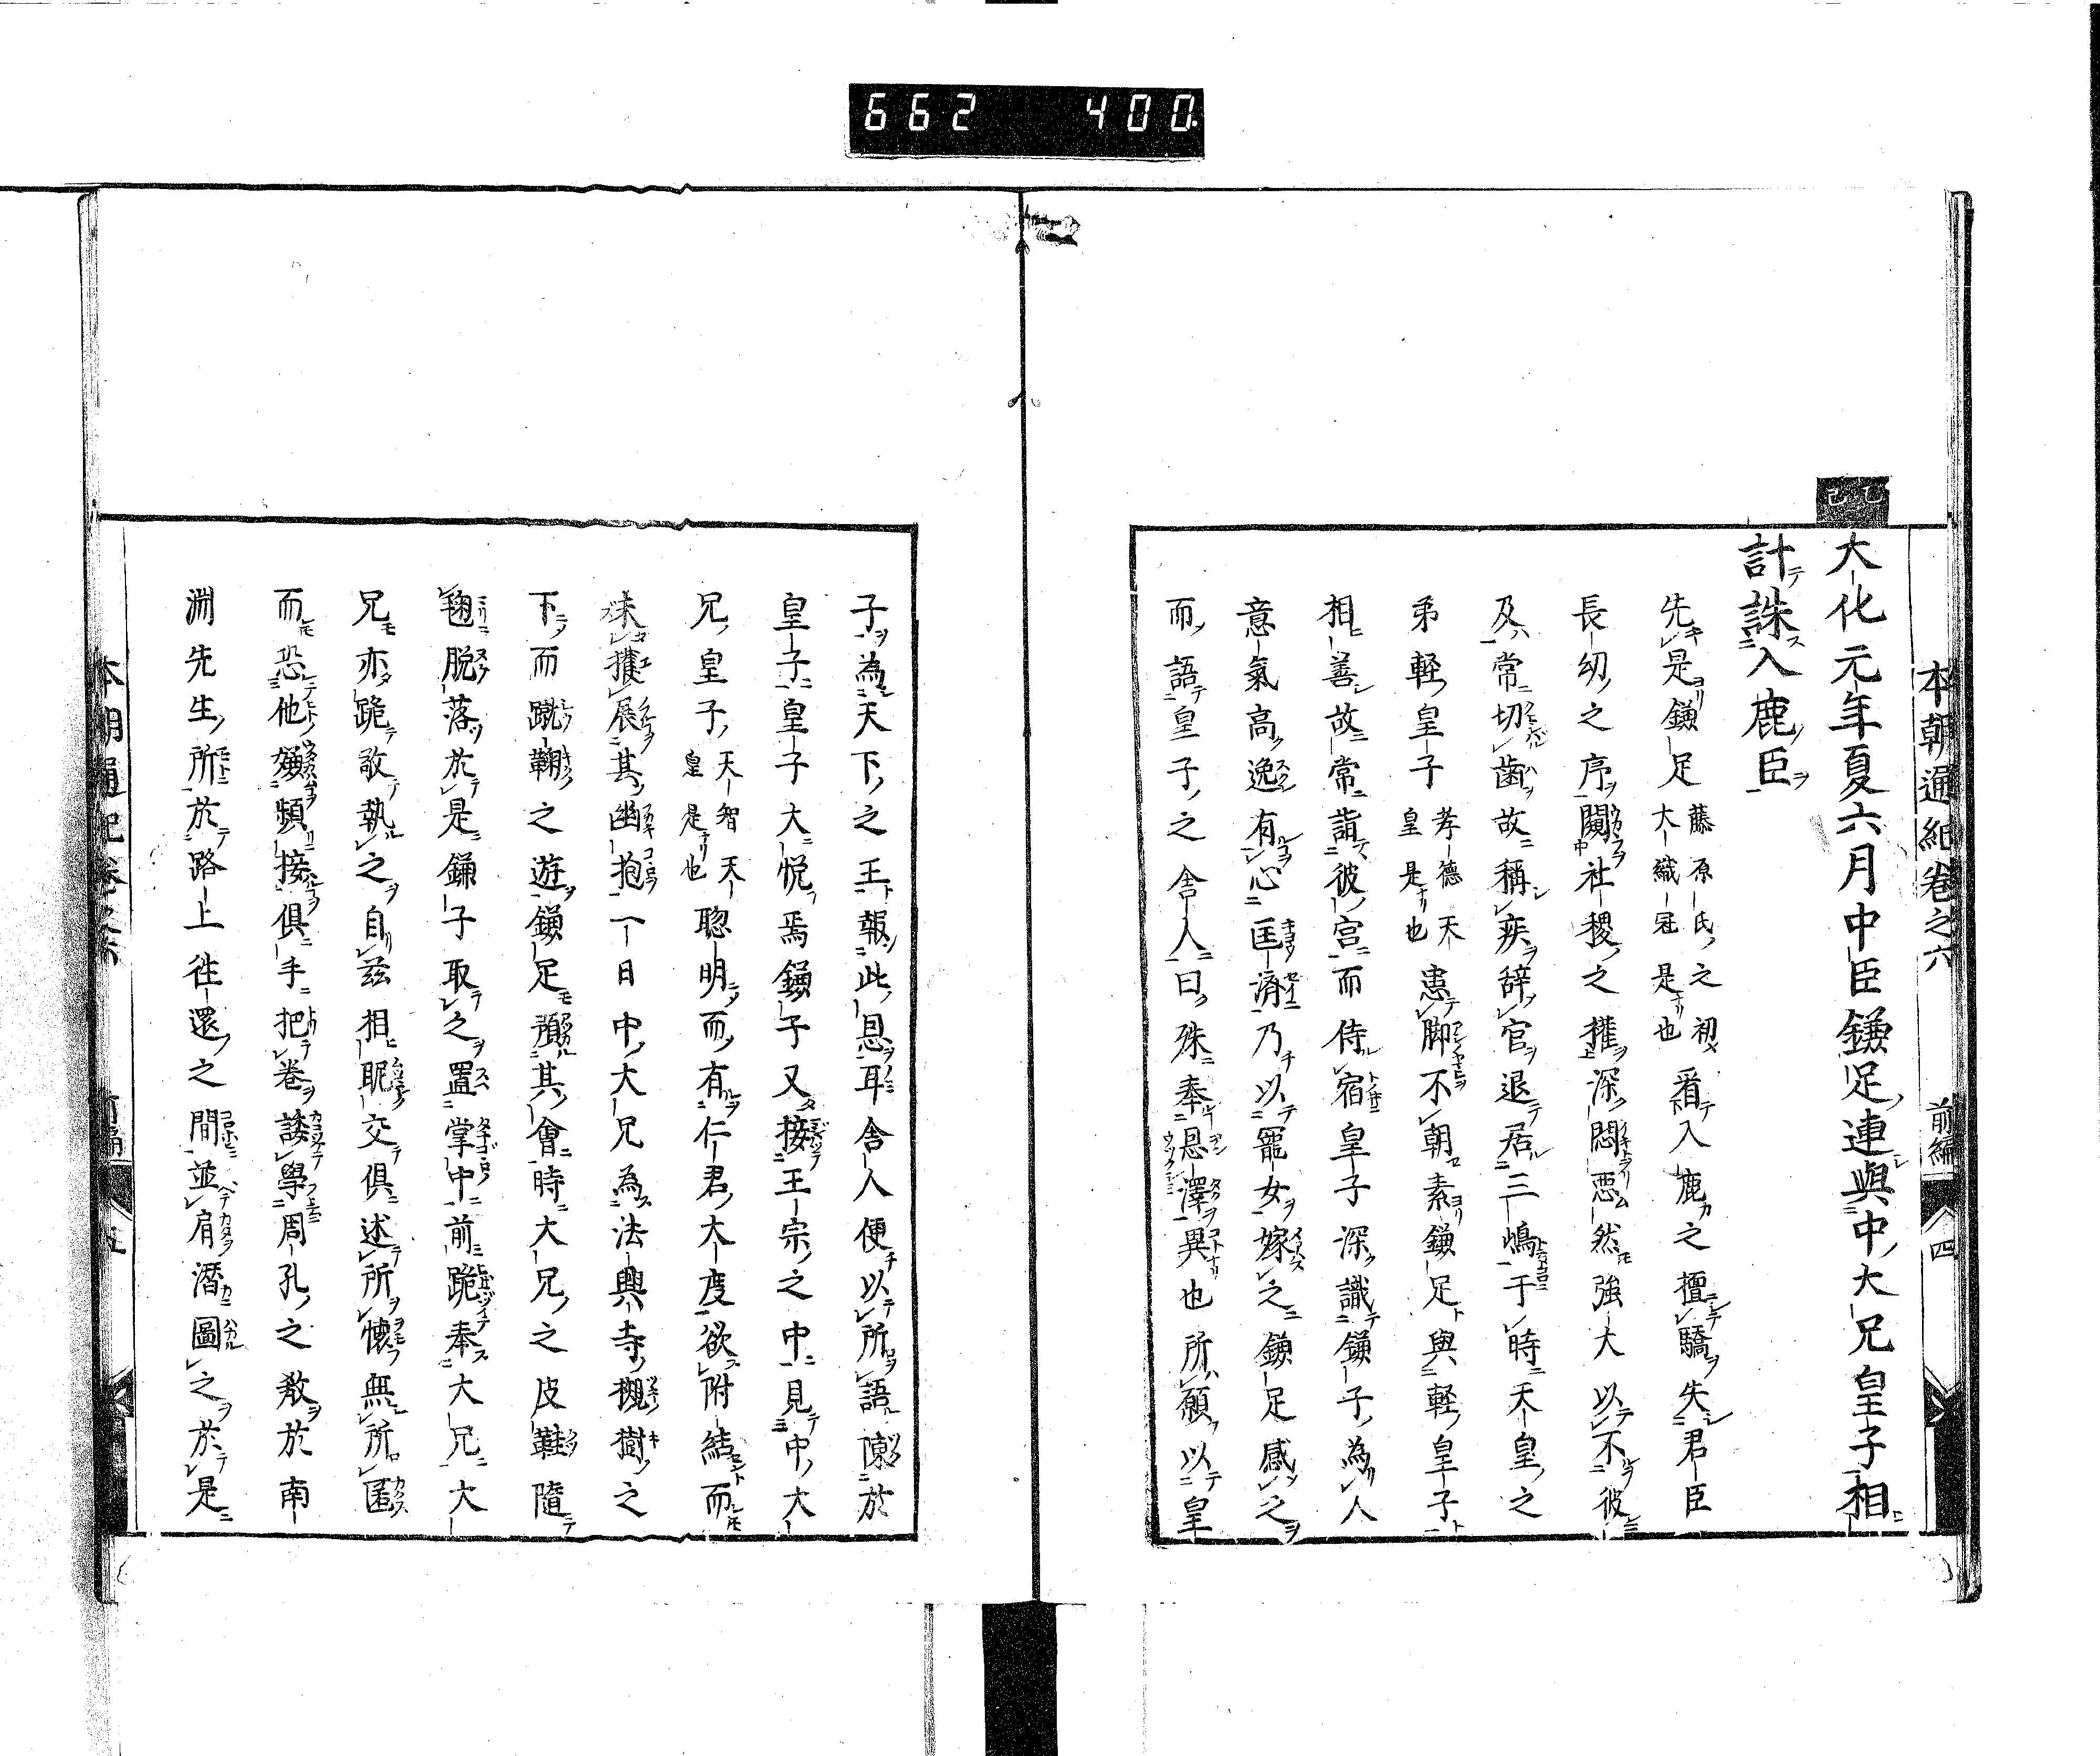 662 400.
本朝通紀卷之六 前編 四
乙巳
大化元年夏六月中臣鎌足連與中大兄皇子相
計誅入鹿臣
先是鎌足藤原氏之初大織冠是也看入鹿之擅驕失君臣
長幼之序闚社稷之權深悶惡然強大以不彼
及常切齒故稱疾辞官退居三嶋于時天皇之
弟軽皇子孝德天皇是也患脚不朝素鎌足與軽皇子
相善故常詣彼宮而侍宿皇子深識鎌子為人
意氣高逸有心匡濟乃以寵女嫁之鎌足感之
而語皇子之舎人曰殊奉恩澤異也所願以皇
子為天下之王報此恩耳舎人便以所語陳於
皇子皇子大悦焉鎌子又接王宗之中見中大
兄皇子天智天皇是也聡明而有仁君大度欲附結而
未擭展其幽抱一日中大兄為法興寺槻樹之
下而蹴鞠之遊鎌足預其會時大兄之皮鞋隨
鞠脱落於是鎌子取之置掌中前跪奉大兄大
兄亦跪敬執之自茲相眤交倶述所懷無所匿
而恐他嫌頻接倶手把卷談學周孔之敎於南
淵先生所於路上徃還之間並肩潛圖之於是